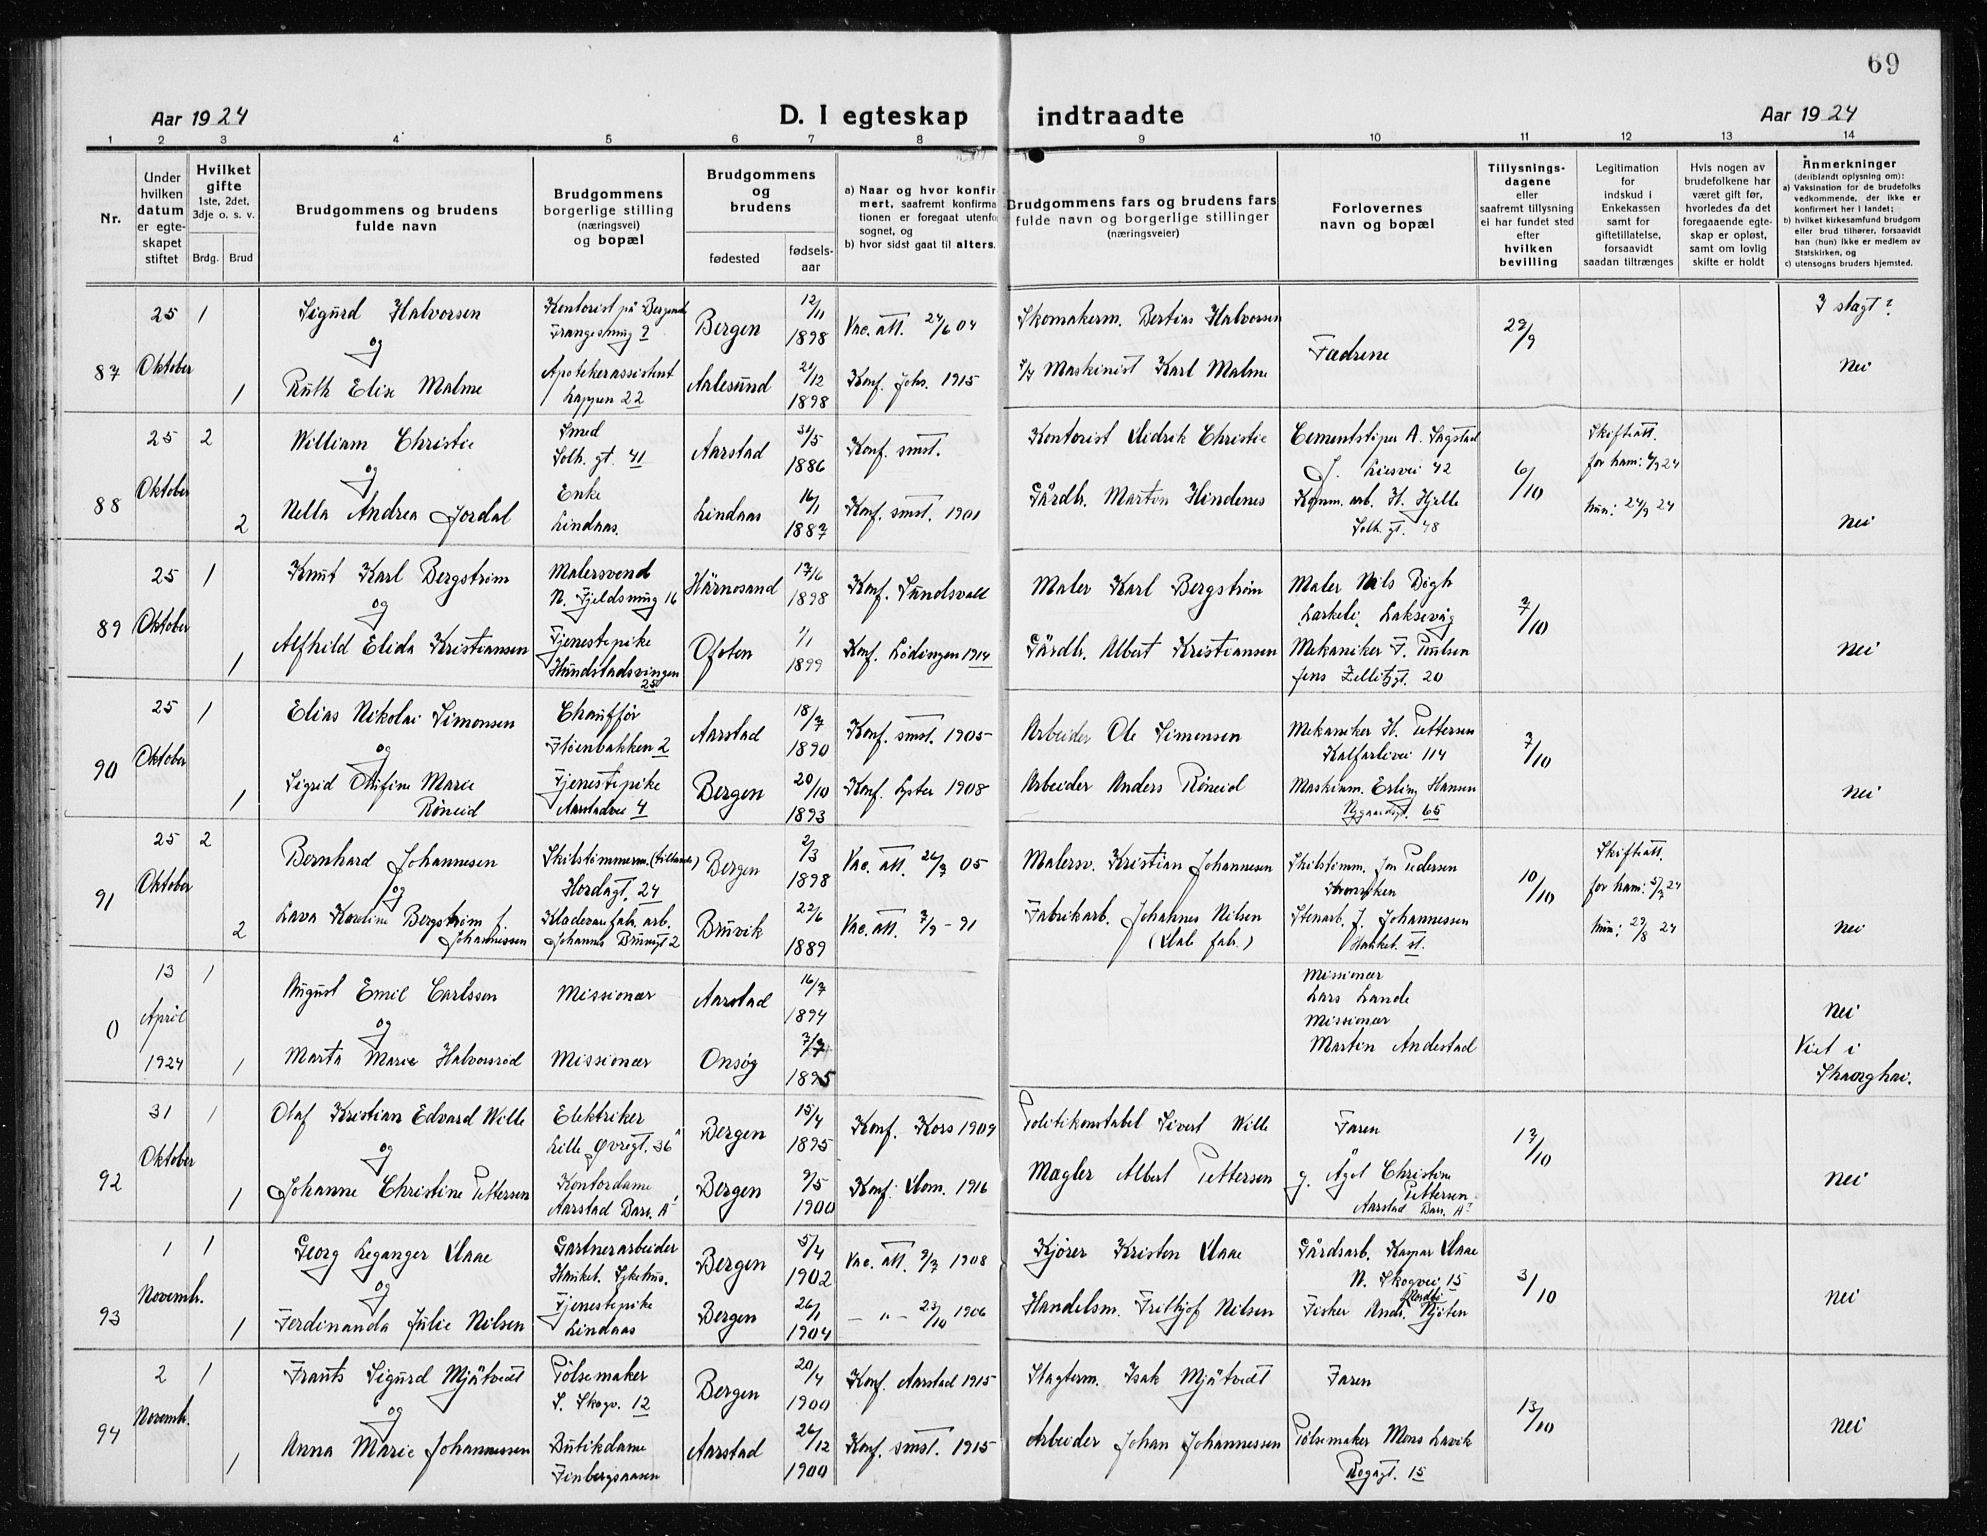 69
Aar 1924
D. I egteskap indtraadte
Aar 1924
1 2 3 4 5 6 7 8 9 10 11 12 13 14
Nr.
Under hvilken datum er egteskapet stiftet
Hvilket gifte 1ste, 2det, 3dje o. s. v.
Brdg. Brud
Brudgommens og brudens fulde navn
Brudgommens borgerlige stilling (næringsvei) og bopæl
Brudgommens og brudens
fødested
fødsels-aar
a) Naar og hvor konfirmert, saafremt konfirmationen er foregaat utenfor sognet, og
b) hvor sidst gaat til alters.
Brudgommens fars og brudens fars fulde navn og borgerlige stillinger (næringsveier)
Forlovernes navn og bopæl
Tillysningsdagene eller saafremt tillysning ei har fundet sted efter hvilken bevilling
Legitimation for indskud i Enkekassen samt for giftetillatelse, forsaavidt saadan tiltrænges
Hvis nogen av brudefolkene har været gift før, hvorledes da det foregaaende egteskap er opløst, samt om lovlig skifte er holdt
Anmerkninger (deriblandt oplysning om):
a) Vaksination for de brudefolks vedkommende, der ikke er konfirmert her i landet;
b) hvilket kirkesamfund brudgom eller brud tilhører, forsaavidt han (hun) ikke er medlem av Statskirken, og
c) utensogns bruders hjemsted.
87
25 Oktober
1
Sigurd Halvorsen
Kontorist på Bergens
Bergen 12/11 1898
Vac. att. 24/6 04
Skomakerm. Bertias Halvorsen
Fædrene
29/9
I slagt?
og
1
Ruth Elise Malme
Apotekerassistent
Lappen 22
Aalesund 21/12 1898
Konf. Johs. 1915
Maskinist Karl Malme
Nei
88
25 Oktober
2
William Christie
Smed
Solh. gt. 41
Aarstad 31/5 1886
Konf. smst.
Kontorist Didrik Christie
Cementstøper A. Sagstad
J. Liesvei 42
6/10
Skifteatt.
for ham: 4/9 24
og
2
Nella Andrea Jordal
Enke
Lindaas.
Lindaas 16/1 1887
Konf. smst. 1901
Gårdbr. Marton Hindenes
Komm. arb. H. Hjelle
Solh. gt. 48
hun: 24/9 24
nei
89
25 Oktober
1
Knut Karl Bergstrøm
Malersvend
N. Fjeldsmug 16
Härnosand 17/6 1898
Konf. Sundsvall
Maler Karl Bergstrøm
Maler Nils Bøgh
Larkeli, Laksevåg
7/10
og
1
Alfhild Elida Kristiansen
Tjenestepike
Hundstadsvingen
25
Ofoten 1/1 1899
Konf. Lødingen 1914
Gårdbr. Albert Kristiansen
Mekaniker F. Paulsen
Jens Zelletzgt. 20
nei
90
25 Oktober
1
Elias Nikolai Simonsen
Chauffør
Fløenbakken 2
Aarstad 18/7 1890
Konf. smst. 1905
Arbeider Ole Simonsen
Mekaniker H. Pettersen
Kalfarlivei 114
7/10
og
1
Sigrid Olufine Marie
Røneid
Tjenestepike
Aarstadvei 4
Bergen 20/10 1893
Konf. Lyster 1908
Arbeider Anders Røneid
Maskinm. Erling Hansen
Nygaardsgt. 65
nei
91
25 Oktober
2
Bernhard Johannesen
Skibstømmerm.
Hordagt. 24
Bergen 2/3 1898
Vac. att. 26/7 05
Malersv. Kristian Johannesen
Skibstimm. Jon Pedersen
10/10
Skifteatt.
for ham: 5/7 24
og
2
Lava Karoline Bergstrøm f.
Johannessen
Klædevarefabr. arb.
Johannes Brunsgt 2
Bruvik 22/6 1889
Vac. att. 7/9 - 91
Fabrikarb. Johannes Nilsen
(Dale fabr.)
Stenarb. J. Johannessen
Haukel. st.
hun: 29/8 24
nei
0
13 April 1924
1
August Emil Carlsson
Missionær
Aarstad 16/7 1894
Missionær
Lars Lande
nei
og
1
Marta Marie Halvorsrød
Missionær
Onsøy 7/7 1895
Missionær
Martin Andestad
Viet i
Shanghai.
92
31 Oktober
1
Olaf Kristian Edvard Wille
Elektriker
Lille Øvregt. 36 A
Bergen 15/4 1895
Konf. Kors 1909
Politikonstabel Sivert Wille
Faren
17/10
og
1
Johanne Christine Pettersen
Kontordame
Aarstad Barr. A
Bergen 9/5 1900
Konf. Dom. 1916
Magler Albert Pettersen
Christine
Pettersen
Aarstad Barr. A
nei
93
1 Novembr.
1
Georg Leganger Daae
Gartnerarbeider
Haukel. Sykehus.
Bergen 5/4 1902
Vac. att. 9/7 1908
Kjører Kristen Daae
Gårdsarb. Kaspar Daae
N. Skogvei 15
3/10
og
1
Ferdinanda Julie Nilsen
Tjenestepike
Lindaas
Bergen 26/1 1904
— „ — 23/10 1906
Handelsm. Frithjof Nilsen
Fisker Ands. Njøten
nei
94
2 Novembr.
1
Frants Sigurd Mjåtvedt
Pølsemaker
S. Skogv. 12
Bergen 20/4 1900
Konf. Aarstad 1915
Slagterm. Isak Mjåtvedt
Faren
13/10
og
1
Anna Marie Johannessen
Butikdame
Finbergsaasen
Aarstad 26/12 1900
Konf. smst. 1915
Arbeider Johan Johannessen
Pølsemaker Mons Lavik
Rogagt. 15
nei